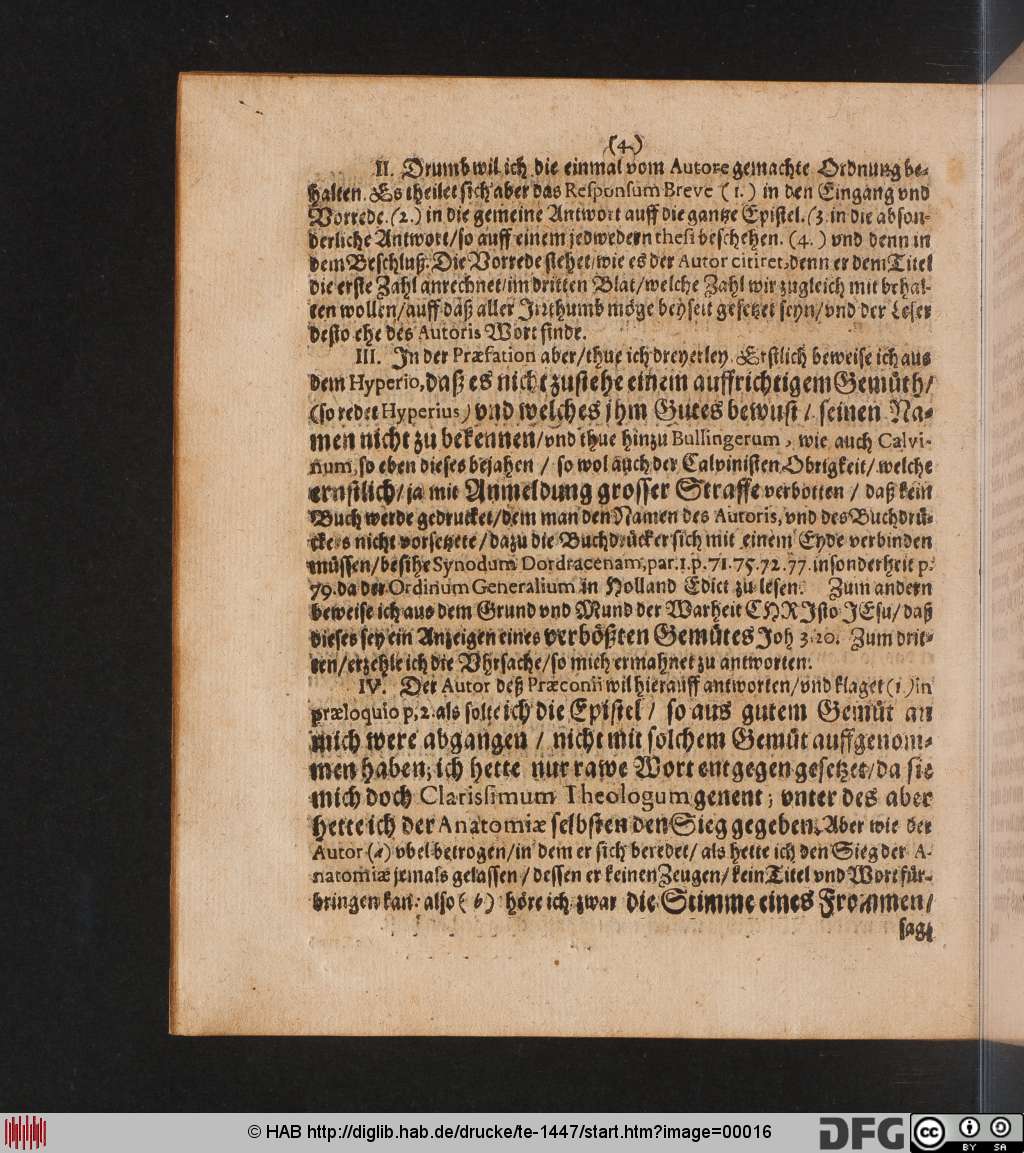 (4.)
II. Drumb wil ich die einmal vom Autore gemachte Ordnung be-
halten. Es theilet sich aber das Responsum Breve (1.) in den Eingang vnd
Vorrede. (2.) in die gemeine Antwort auff die gantze Epistel. (3. in die abson-
derliche Antwort/so auff einem jedwedern thesi beschehen. (4.) vnd denn in
dem Beschluß. Die Vorrede stehet/wie es der Autor citiret, denn er dem Titel
die erste Zahl anrechnet/im dritten Blat/welche Zahl wir zugleich mit behal-
ten wollen/auff daß aller Irrthumb möge beyseit gesetzet seyn/vnd der Leser
desto ehe des Autoris Wort finde.
III. In der Præfation aber/thue ich dreyerley. Erstlich beweise ich aus
dem Hyperio, daß es nicht zustehe einem auffrichtigem Gemüth/
(so redet Hyperius) vnd welches jhm Gutes bewust/ seinen Na-
men nicht zu bekennen/vnd thue hinzu Bullingerum, wie auch Calvi-
num, so eben dieses bejahen / so wol auch der Calvinisten Obrigkeit/ welche
ernstlich/ ja mit Anmeldung grosser Straffe verbotten / daß kein
Buch werde gedrucket/dem man den Namen des Autoris, vnd des Buchdrü-
ckers nicht vorsetzete/dazu die Buchdrücker sich mit einem Eyde verbinden
müssen/besihe Synodum Dordracenam, par. 1. p. 71. 75. 72. 77. insonderheit p.
79. da der Ordinum Generalium in Holland Edict zu lesen. Zum andern
beweise ich aus dem Grund vnd Mund der Warheit CHRIsto JEsu/ daß
dieses sey ein Anzeigen eines verbößten Gemütes Joh 3. 20. Zum drit-
ten/erzehle ich die Vhrsache/so mich ermahnet zu antworten.
IV. Der Autor deß Præconii wil hierauff antworten/vnd klaget (1.) in
præloquio p. 2. als solte ich die Epistel/ so aus gutem Gemüt an
mich were abgangen / nicht mit solchem Gemüt auffgenom-
men haben; ich hette nur rawe Wort entgegen gesetzet/da sie
mich doch Clarissimum Theologum genent; vnter des aber
hette ich der Anatomiæ selbsten den Sieg gegeben. Aber wie der
Autor (a) vbel betrogen/in dem er sich beredet/ als hette ich den Sieg der A-
natomiæ jemals gelassen / dessen er keinen Zeugen/ kein Titel vnd Wort für-
bringen kan: also (b) höre ich zwar die Stimme eines Frommen/
sagt
© HAB http://diglib.hab.de/drucke/te-1447/start.htm?image=00016
DFG
cc
BY SA